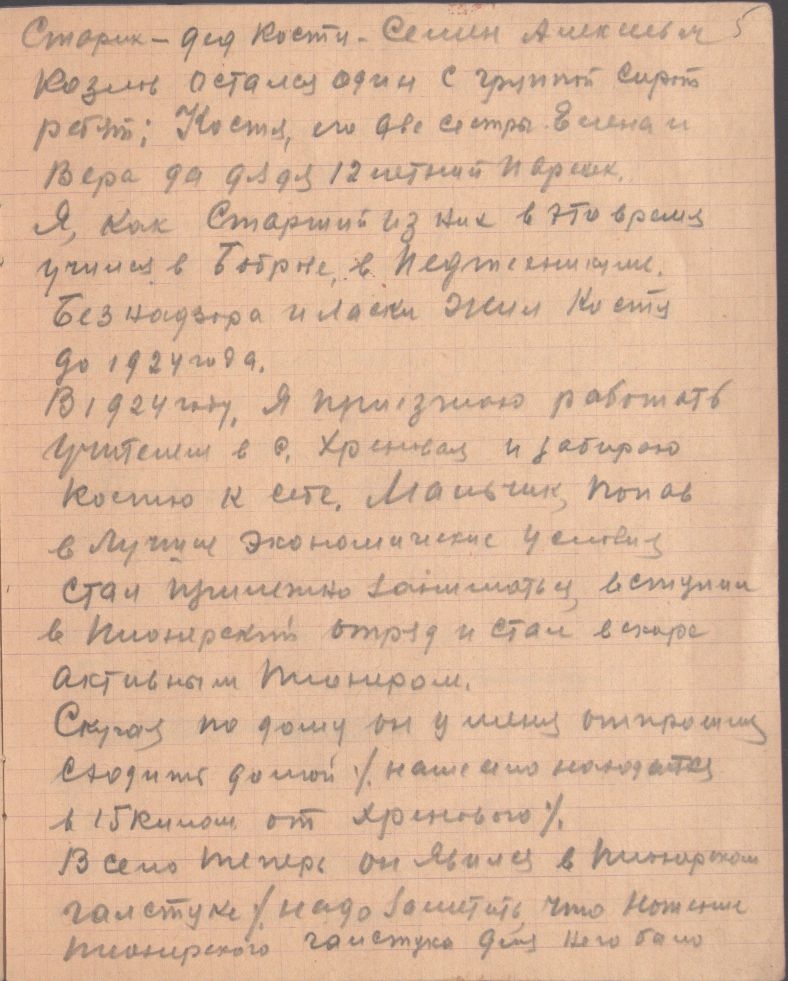 Старик – дед Кости – Семен Алексеевич 5
Козлов остался один с группой сирот
ребят; Костя, его две сестры Елена и
Вера да дядя 12 летний парень.
Я, как старший из них в это время
учился в Боброве, в Педтехникуме.
Без надзора и ласки жил Костя
до 1924 года.
В 1924 году, я приезжаю работать
учителем в с. Хреновая и забираю
Костю к себе. Мальчик, попав
в лучшие экономические условия
стал прилежно заниматься, вступил
в пионерский отряд и стал вскоре
активным пионером.
Скучая по дому он у меня отпросился
сходить домой /. наше село находится
в 15 килом. от Хренового /.
В село теперь он явился в пионерском
галстуке /. надо заметить, что ношение
пионерского галстука для него было